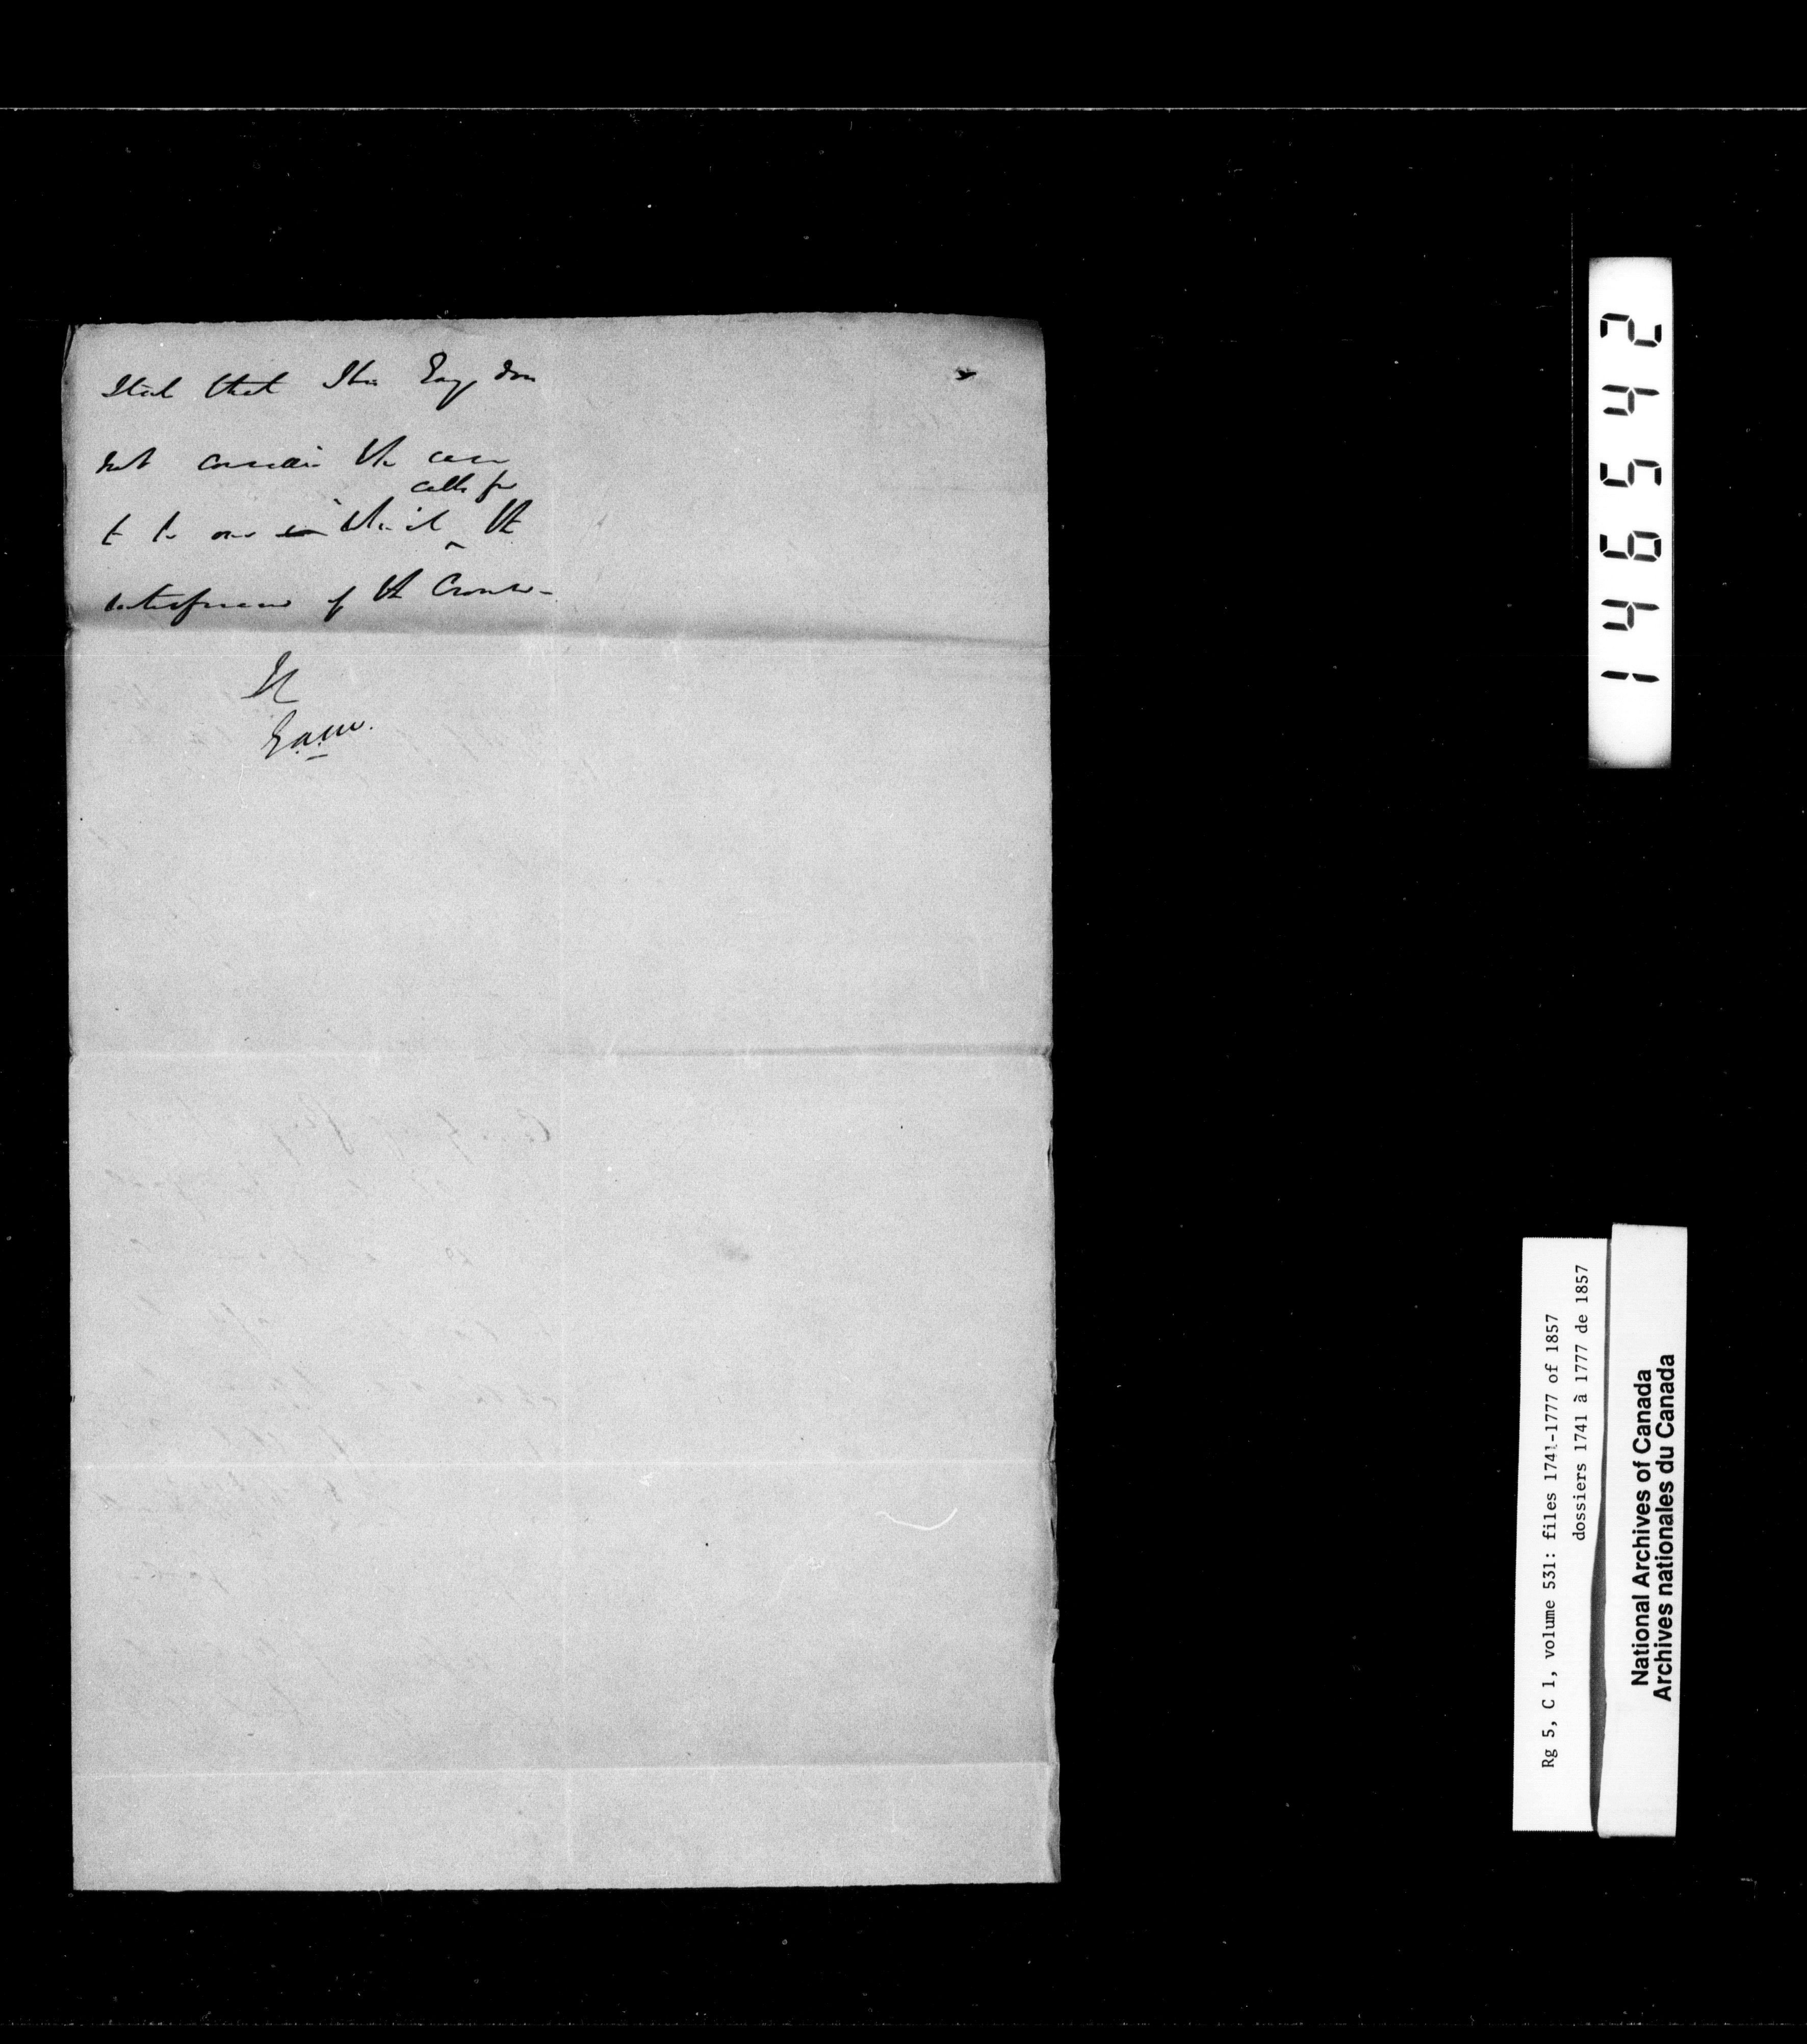 State that His Excy does
not consider the case
calls for
to be one in which the
interference of the Crown -
E.A.M.
146542
Rg 5, C 1, volume 531: files 1741-1777 of 1857
dossiers 1741 à 1777 de 1857
National Archives of Canada
Archives nationales du Canada